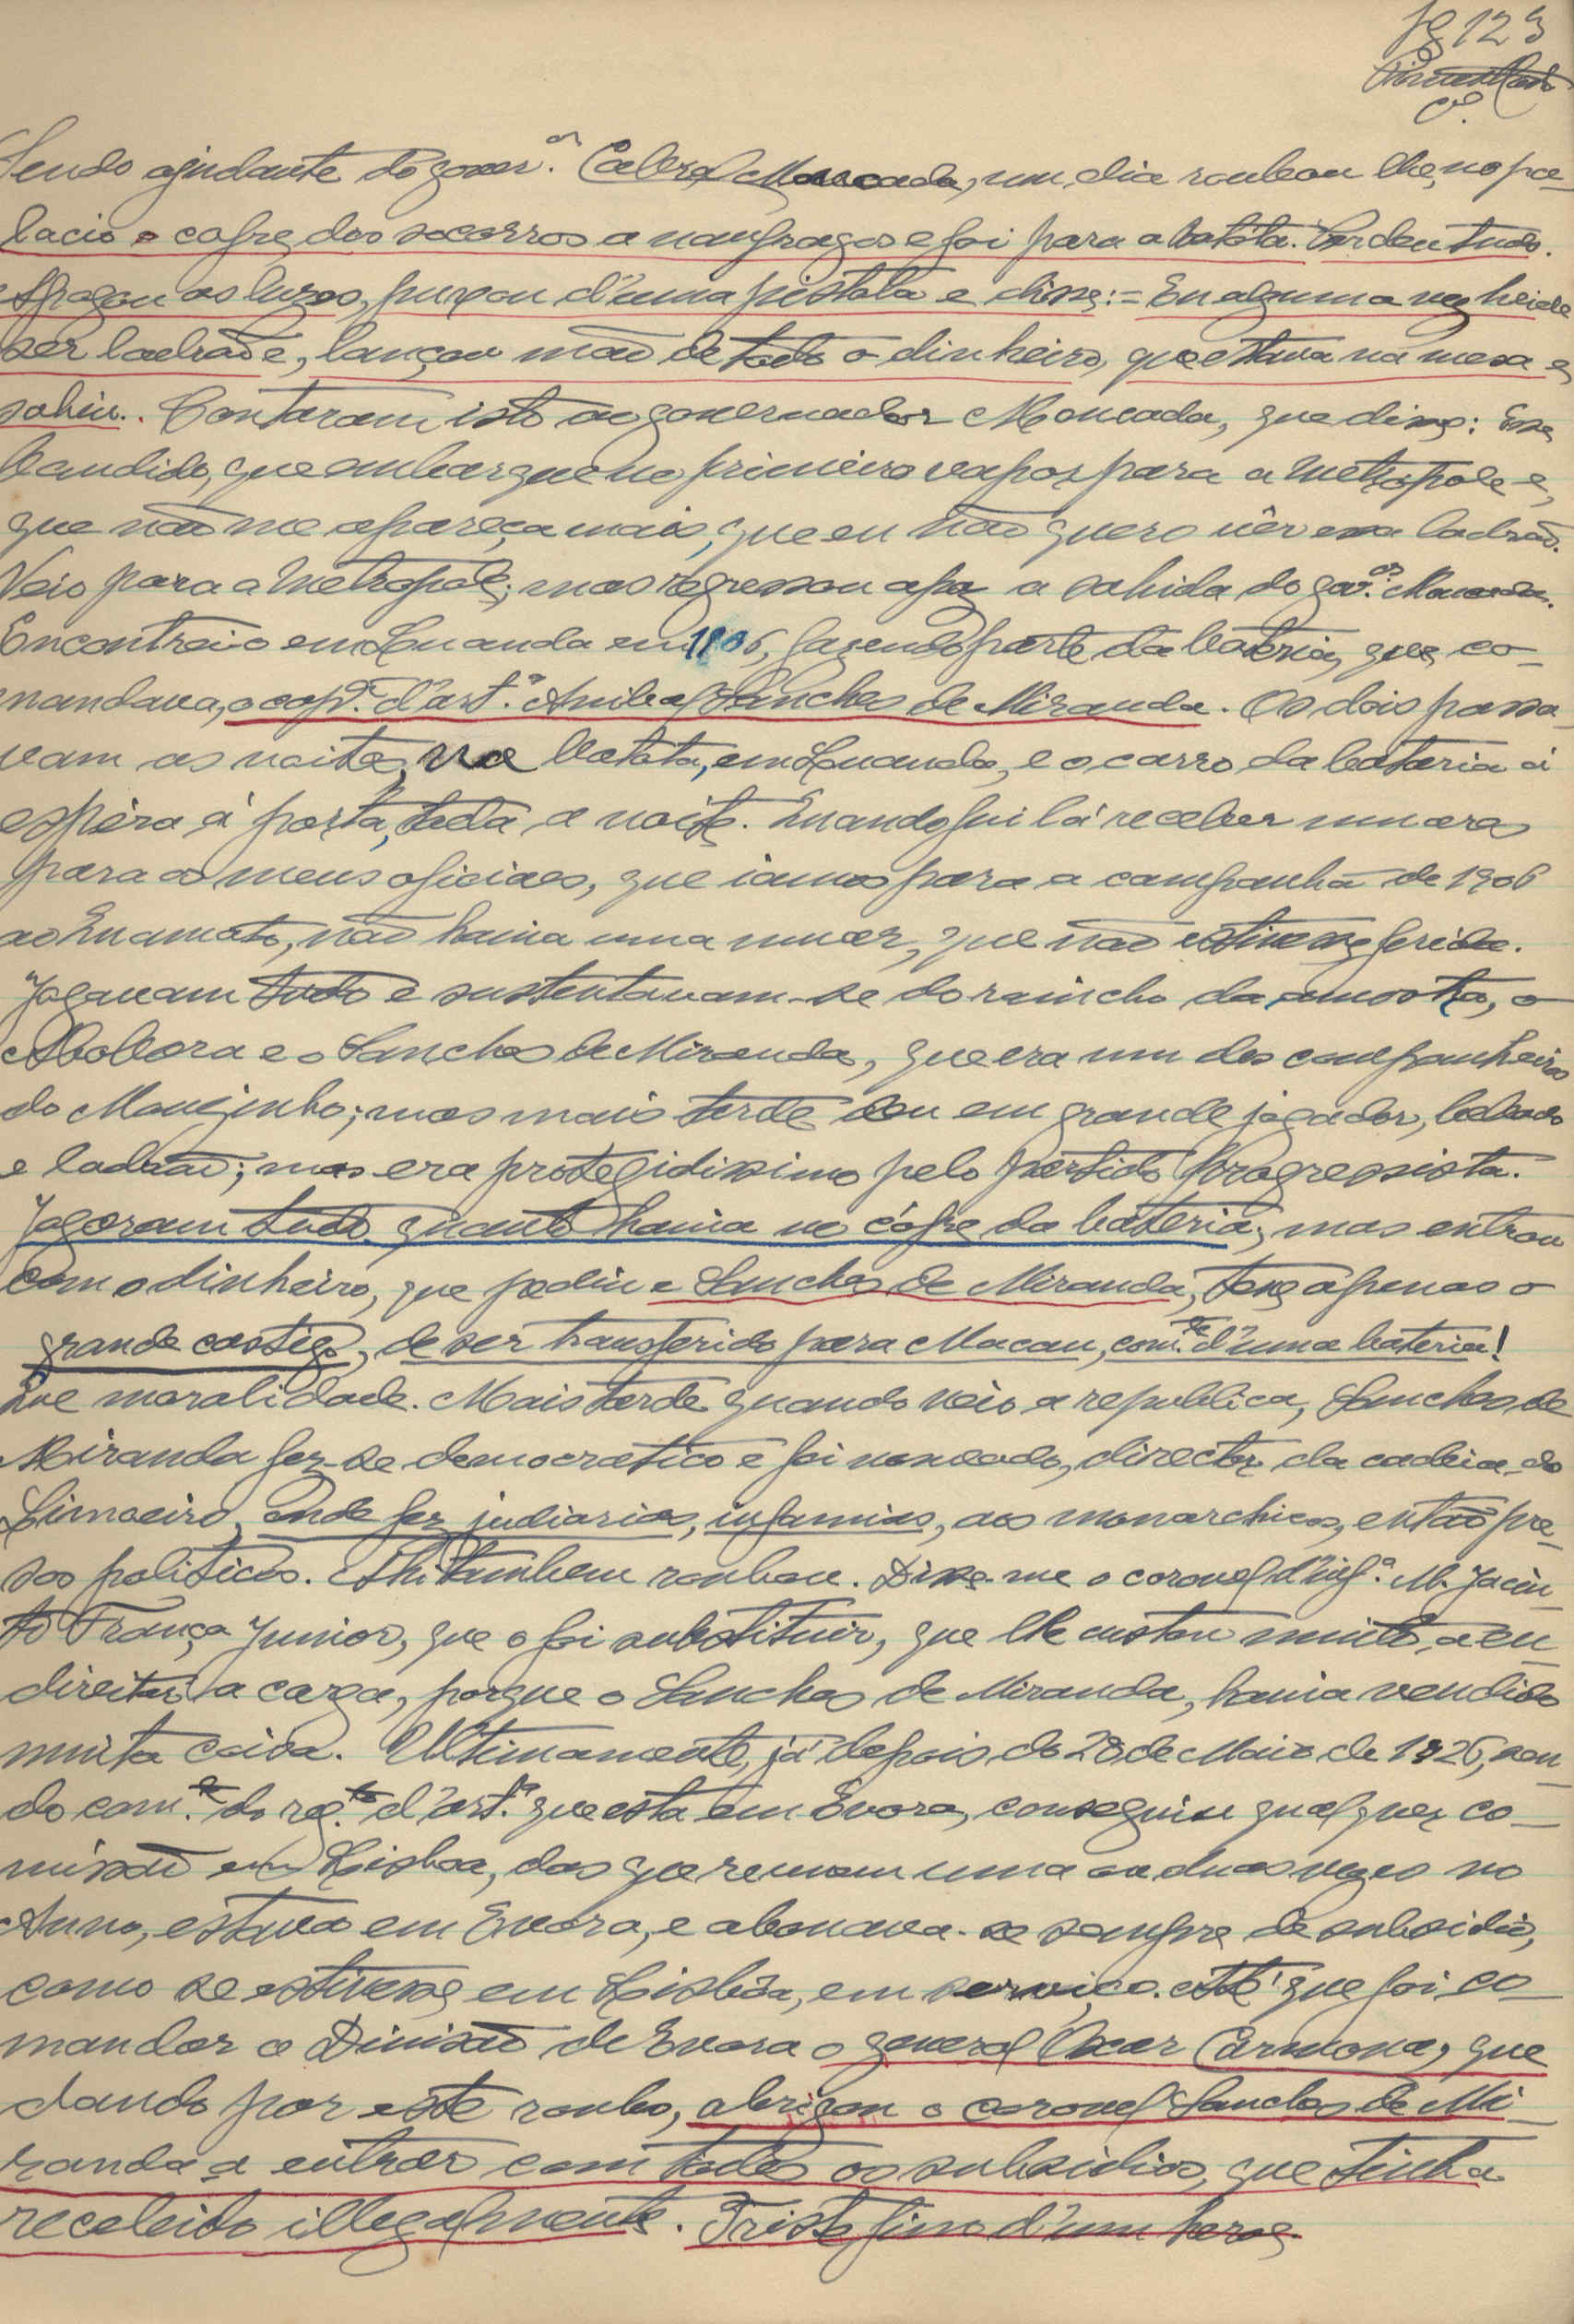 fg 123
Sendo ajudante do gover.or Cabral Moncada, um dia roubou lhe, no pa-
lacio o cofre dos socorros a naufragos e foi para a batota. Perdeu tudo.
Apagou as luzes, puxou d'uma pistola e disse:= Eu alguma vez hei de
ser ladrão e, lançou mão de todo o dinheiro, que estava na mesa e
sahiu. Contaram isto ao governador Moncada, que disse: Esse
bandido, que embarque no primeiro vapor para a Metropole e,
que não me apareça mais, que eu não quero vêr esse ladrão.
Veio para a Metropole; mas regressou apoz a sahida do gov.or Moncada.
Encontrei-o em Luanda em 1906, fazendo parte da bateria, que co-
mandava, o cap. d'art.a Anibal Sanches de Miranda. Os dois passa-
vam as noites, na batota, em Luanda, e o carro da bateria á
espéra á porta, toda a noite. Quando fui lá receber muares
para os meus oficiaes, que iamos para a campanha de 1906
ao Cuamato, não havia uma muar, que não estivesse ferida.
Jogavam tudo e sustentavam-se do rancho da amostra, o
Abobora e o Sanches de Miranda, que era um dos companheiros
do Mousinho; mas mais tarde deu em grande jogador, bebado
e ladrão; mas era protegidissimo pelo partido Progressista.
Jogaram tudo quanto havia no cófre da bateria; mas entrou
com o dinheiro, que pediu e Sanches de Miranda, teve apenas o
grande castigo, de ser transferido para Macau, com.te d'uma bateria!
Que moralidade. Mais tarde quando veio a republica, Sanches de
Miranda fez-se democratico e foi nomeado, director da cadeia do
Limoeiro, onde fez judiarias, infamias, aos monarchicos, então pre-
sos politicos. Ahi tambem roubou. Disse-me o coronel d'inf.a M. Jacin-
to França Junior, que o foi substituir, que lhe custou muito, a en-
direitar a carga, porque o Sanches de Miranda, havia vendido
muita coisa. Ultimamente, já depois do 28 de Maio de 1926, sen-
do com.te do reg.to d'art.a que esta em Evora, conseguiu qualquer co-
missão em Lisboa, das que reunem uma ou duas vezes no
Anno, estava em Evora, e abonava-se sempre de subsidio,
como se estivesse em Lisbôa, em serviço. Até que foi co-
mandar a Divisão de Evora o general Oscar Carmona, que
dando por este roubo, obrigou o coronel Sanches de Mi-
randa a entrar com todos os subsidios, que tinha
recebido illegalmente. Triste fim d'um heroe.